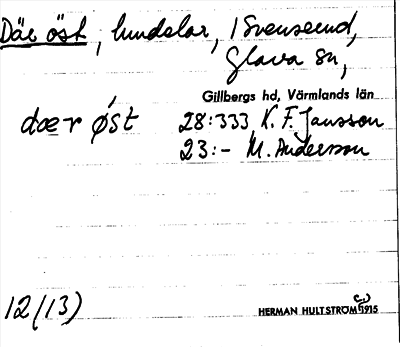 Där öst, hundslar, i Svenserud,
Glava sn,
Gillbergs hd, Värmlands län
dær øśt 28:333 K. F. Jansson
23:- M. Anderson
12(13)
HERMAN HULTSTRÖM 1915